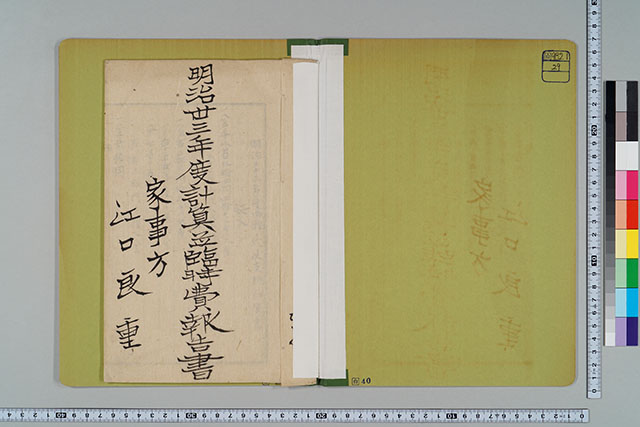 明治廿三年度計算並臨時費報告書
家事方
江口良重
29
40